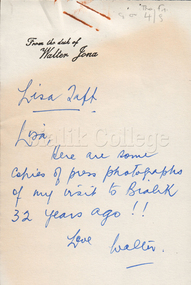 From the desk of
Walter Jona
Lisa Taft
Lisa
Bialik College
Here are some
copies of press photographs
of my visit to Bialik
32 years ago!!
Love
Walter.